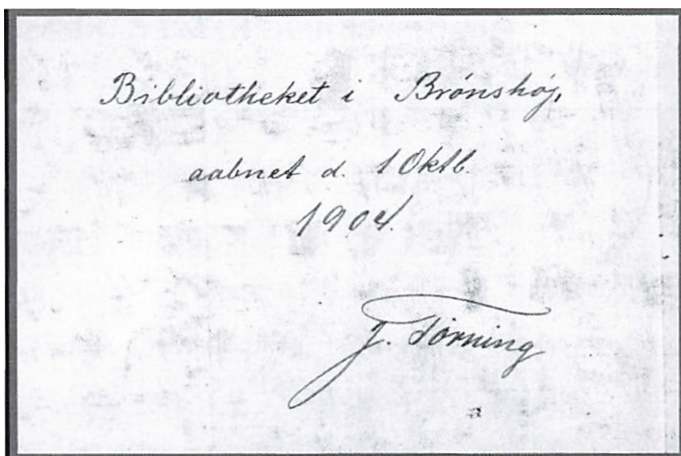 Bibliotheket i Brónshøj,
aabnet d. 1 Oktb.
1904.
J. Tørning